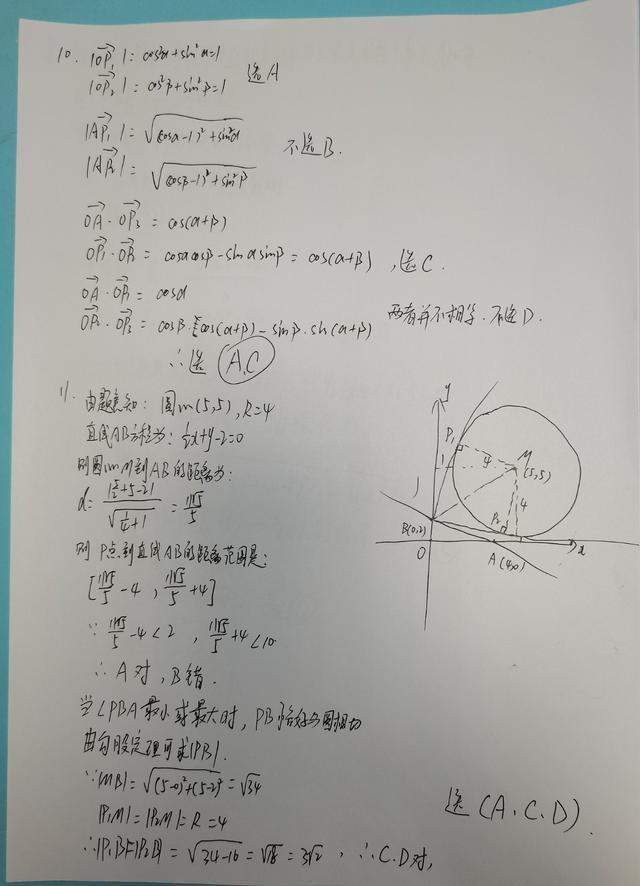 10. |OP₁| = cos²α+sin²α=1
|OP₂| = cos²β+sin²β=1
选A
|AP₁| = √(cosα-1)²+sin²α
|AP₂| = √(cosβ-1)²+sin²β
不选B.
OA·OP₃ = cos(α+β)
OP₁·OP₂ = cosαcosβ-sinαsinβ = cos(α+β), 选C.
OA·OP₁ = cosα
OP₂·OP₃ = cosβ·cos(α+β)-sinβ·sin(α+β)
两者并不相等. 不选D.
∴选 A.C
11. 由题意知: 圆M(5,5), R=4
直线AB方程为: ½x+y-2=0
则圆心M到AB的距离为:
d= |5/2+5-2| / √(1/4+1) = 11√5/5
则P点到直线AB的距离范围是:
[11√5/5-4, 11√5/5+4]
∵ 11√5/5-4<2, 11√5/5+4<10
∴ A对, B错.
当∠PBA最小或最大时, PB恰好与圆相切
由勾股定理可求|PB|.
∵|MB|=√(5-0)²+(5-2)²=√34
|P₁M|=|P₂M|=R=4
∴|P₁B|=|P₂B|=√34-16=√18=3√2, ∴C.D对,
选(A.C.D).
y
P₁
4
M
(5,5)
4
P₂
B(0,2)
O
A(4,0)
x